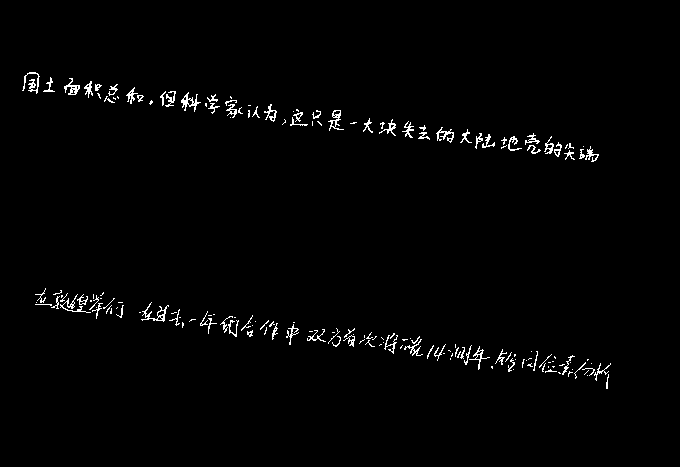 国土面积总和。但科学家认为,这只是一大块失去的大陆地壳的尖端
在敦煌举行 在过去一年的合作中 双方首次将碳14测年、铅同位素分析